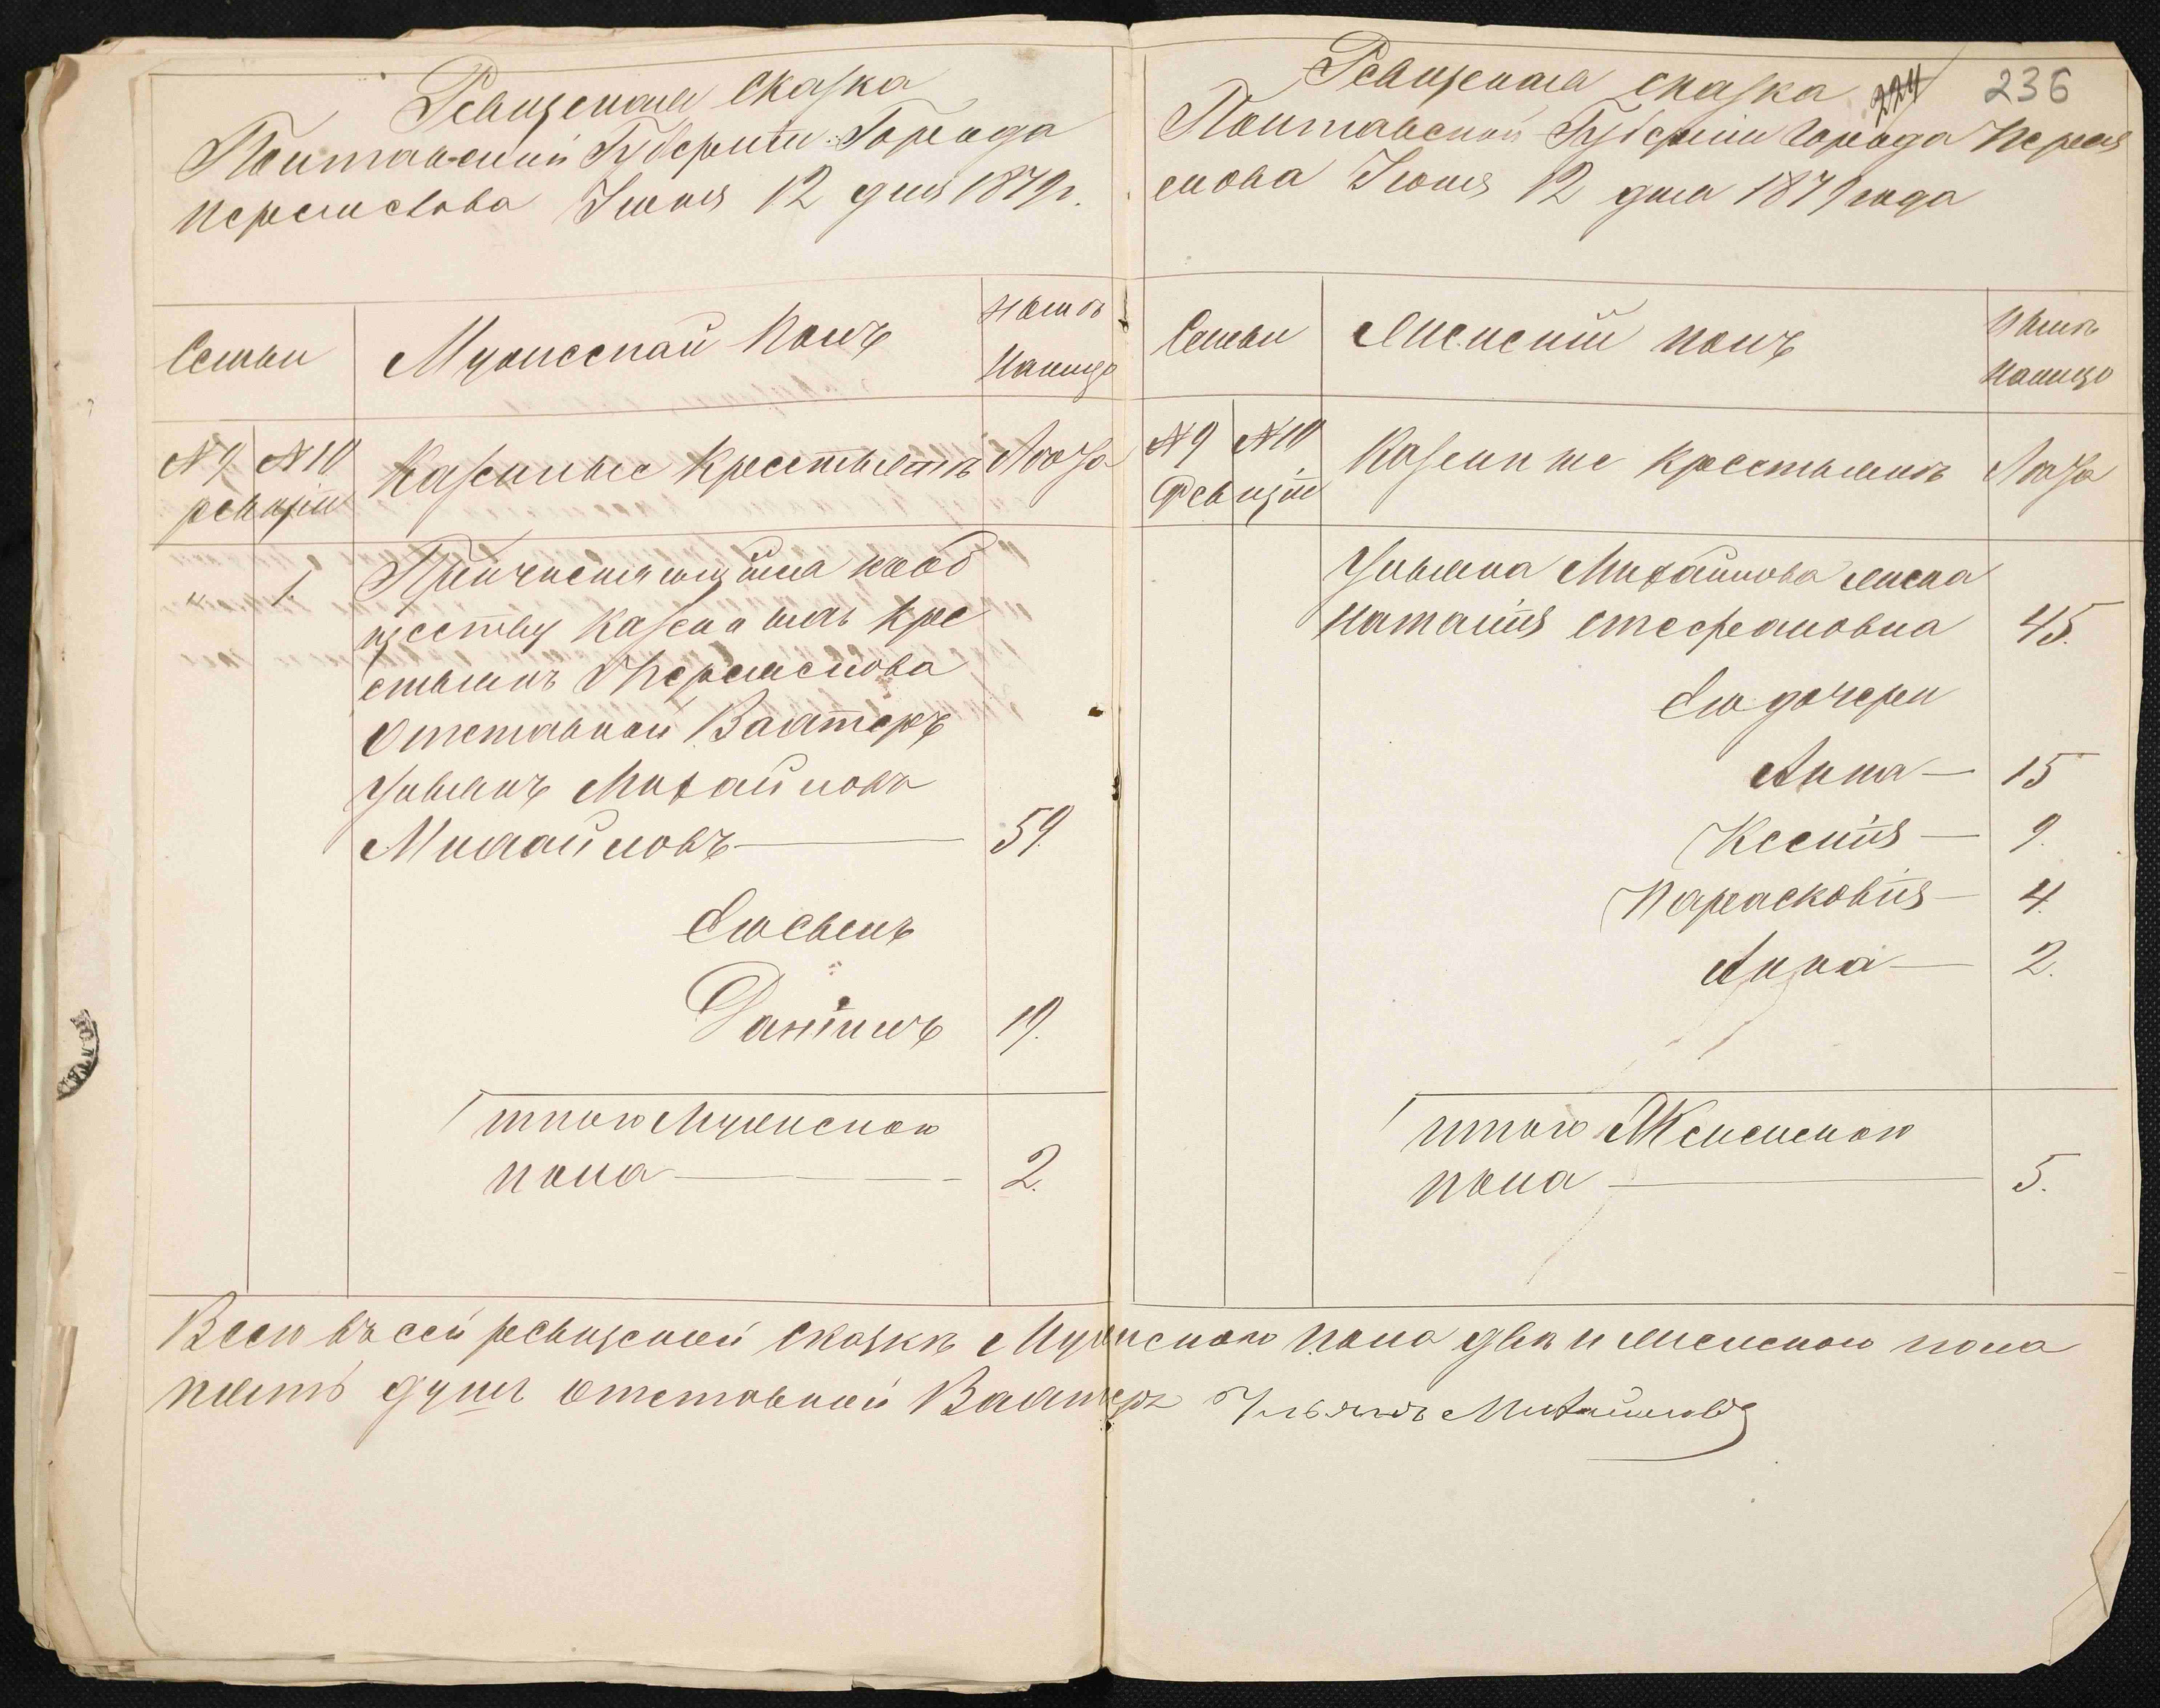 Ревизская Сказка
Полтавской Губернии Города
Переяслова Июня 12 дня 1879 г.
Семьи
Мужескай Полъ
Ныне
Налицо
№ 9 № 10
ревизіи
Казенные Крестьянъ
Лета
" 1.
Причисляющійся къ об
ществу Казенныхъ Кре
стьянъ Переяслова
Отставной Вахтеръ
Ульянъ Михайловъ
Михайловъ 59.
Его Сынъ
Даніилъ 19.
итого Мужеского
пола 2.
Ревизская сказка
224
236
Полтавской Губерніи города Перея
слова Июня 12 дня 1879 года
Семьи
Женскій полъ
Ныне
Налицо
№ 9 № 10
Ревизіи
Казенные крестьянъ
Лета
Ульяна Михайлова жена
Наталія Стефановна 45.
Его дочери
Анна — 15
Ксенія — 9.
Парасковія — 4.
Анна — 2.
итого Женского
пола 5.
Всего въ сей ревизской сказке Мужеского пола две и женского пола
пять душъ отставной Вахтеръ Ульянъ Михайловъ